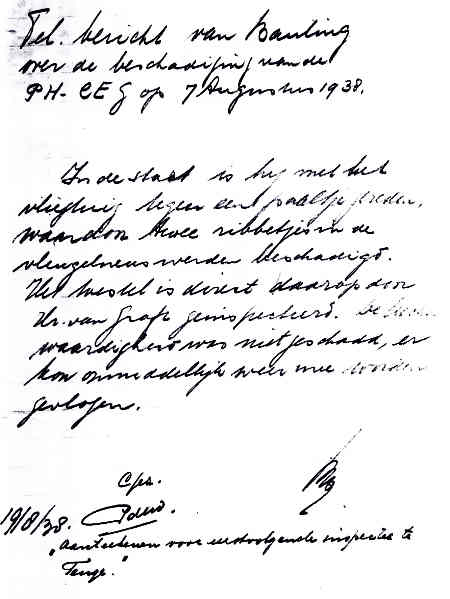 Tel. bericht van Banling
over de beschadiging van de
PH-CEG op 7 Augustus 1938.
In de start is hy met het
vliegtuig tegen een paaltje gereden,
waardoor twee ribbetjes in de
vleugelneus werden beschadigd.
Het toestel is direct daarop door
Hr. van Graft geïnspecteerd. De
waardigheid was niet geschaad, er
kon onmiddellijk weer mee worden
gevlogen.
19/8/38.
"Aanteekenen voor eerstvolgende inspectie te
Teuge."